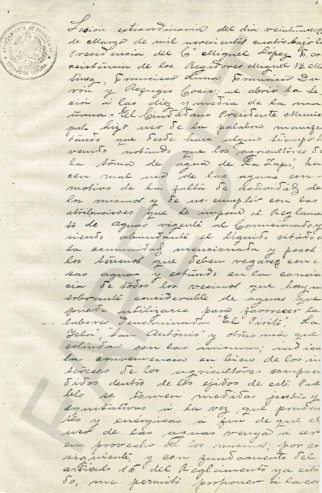 Sesion extraordinaria del dia veintinueve
de Marzo de mil novecientos cuatro bajo la
Presidencia del C. Miguel López F. con
asistencia de los Regidores Miguel B. Mar
tinez, Francisco Luna Francisco Du
rón y Refugio Cosio; se abrió la se
sión á las diez y media de la ma
ñana. El Ciudadano Presidente Munici
pal hizo uso de la palabra manifes
tando que desde hace algun tiempo há
venido notando que los agricultores de
la toma de agua de La ha
cen mal uso de las aguas con
motivo de la falta de actividad de
los mismos y de no cumplir con las
atribuciones que le impone el Reglamen
to de aguas vigente
siendo abundante el liquido citado
la comunidad mencionada y pocos
los terrenos que deben regarse con e
sas aguas y estando en la concien
cia de todos los vecinos que hay un
sobrante considerable de aguas que
puede utilizarse para favorecer las
labores denominadas El Pirúl, La
San Antonio y otras más que
colindan con las mismas, indica
la conveniencia en bien de los in
tereses de los agricultores compren
didos dentro de los ejidos de este Pue
blo se tomen medidas justas y
equitativas á la vez que pruden
tes y energicas á fin de que el
uso de las aguas venga á ser
en provecho de los mismos; por co
siguiente, y con fundamento del
artículo 16 del Reglamento ya cita
do, me permito proponer á la cor